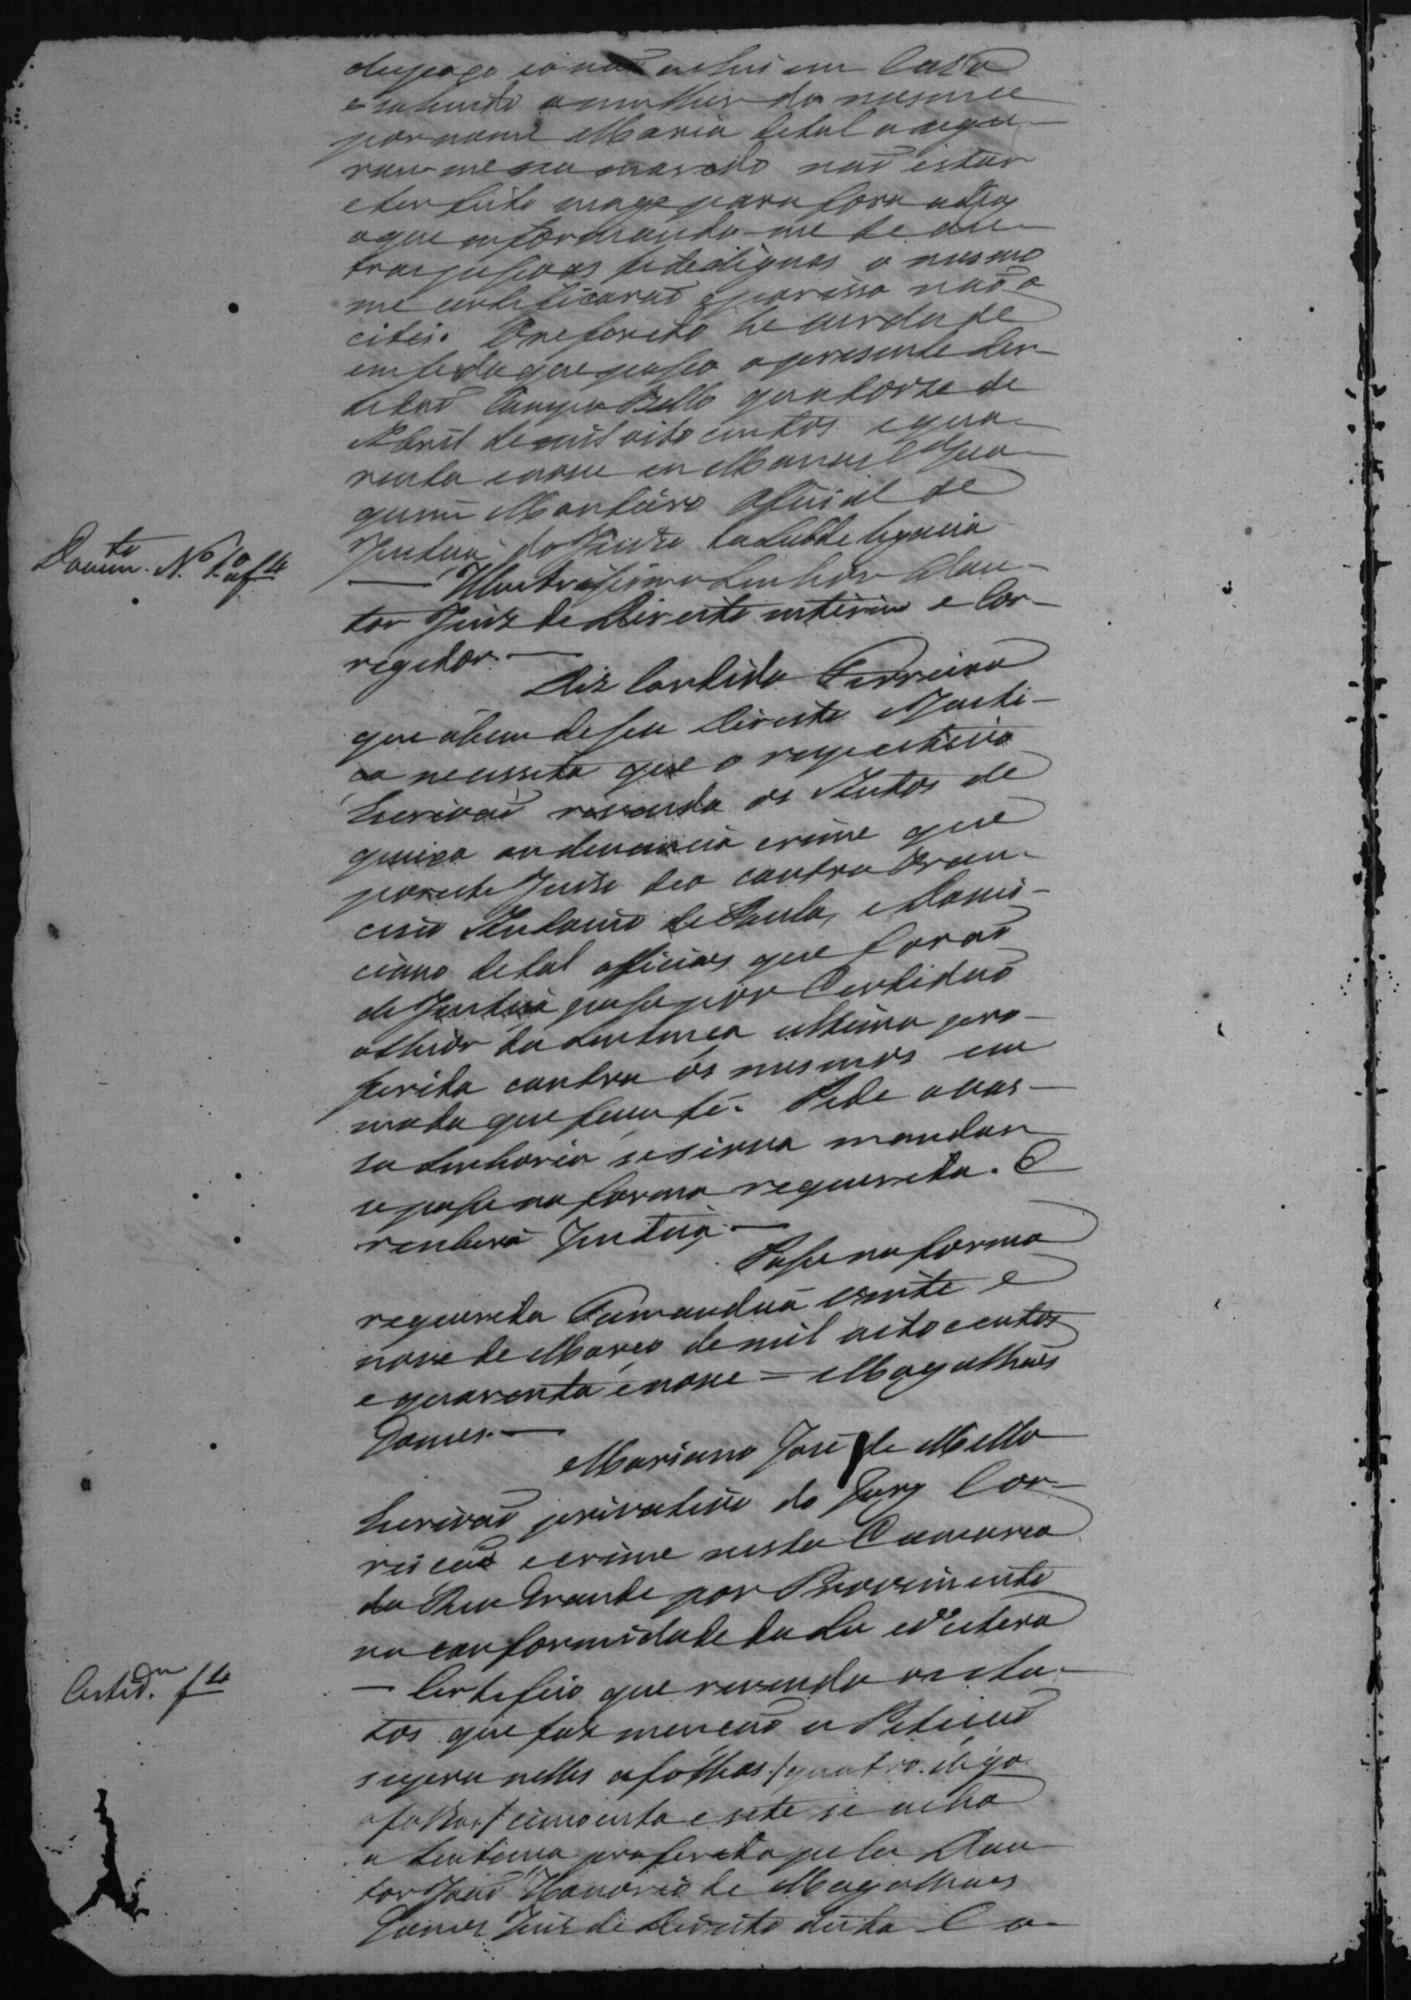 e sahindo a mulher do mesmo
por nome Maria de tal a segu-
rou-me seu marido não estar
e ter feito viage para fora
o que informando-me de ou-
tras pessoas fidedignas o mesmo
me certificarão e por isso não o
citei. O referido he verdade
em fé do que passo a presente Cer-
tidão Campo Bello quatorze de
Abril de mil oito centos e qua-
renta e nove eu Manoel Joa-
quim Monteiro Oficial de
Justiça do Juizo da Subdelegacia
Docum.to N.o 1.o a f 4
— Illustrissimo Senhor Dou-
tor Juiz de Direito interino e Cor-
regedor. —
Diz Candido Ferreira
que abem de seu Direito e Justi-
ça necessita que o respectivo
Escrivão revendo os Autos de
queixa ou denuncia crime que
por este Juizo deo contra Fran-
cisco Antonio de Paula, e Domi-
ciano de tal officiaes que forão
de Justiça passe por Certidão
o theor da Sentença ultima pro-
ferida contra os mesmos em
modo que faça fé. Pede a Vos-
sa Senhoria se sirva mandar
se passe na forma requerida. E
receberá Justiça. —
Passe na forma
requerida Tamanduá vinte e
nove de Março de mil oito centos
e quarenta e nove = Magalhães
Gomes. —
Mariano José de Mello
Escrivão privativo do Jury Cor-
reicão e crime nesta Comarca
do Rio Grande por Provimento
na conformidade da Lei et cetera
Certid.m f 4
— Certefico que revendo os Au-
tos que faz mencão a Peticão
supra nelles a folhas / quatro. digo
a folhas / cincoenta e sete se acha
a Sentença proferida pelo Dou-
tor João Honorio de Magalhaes
Gomes Juiz de Direito desta Co-